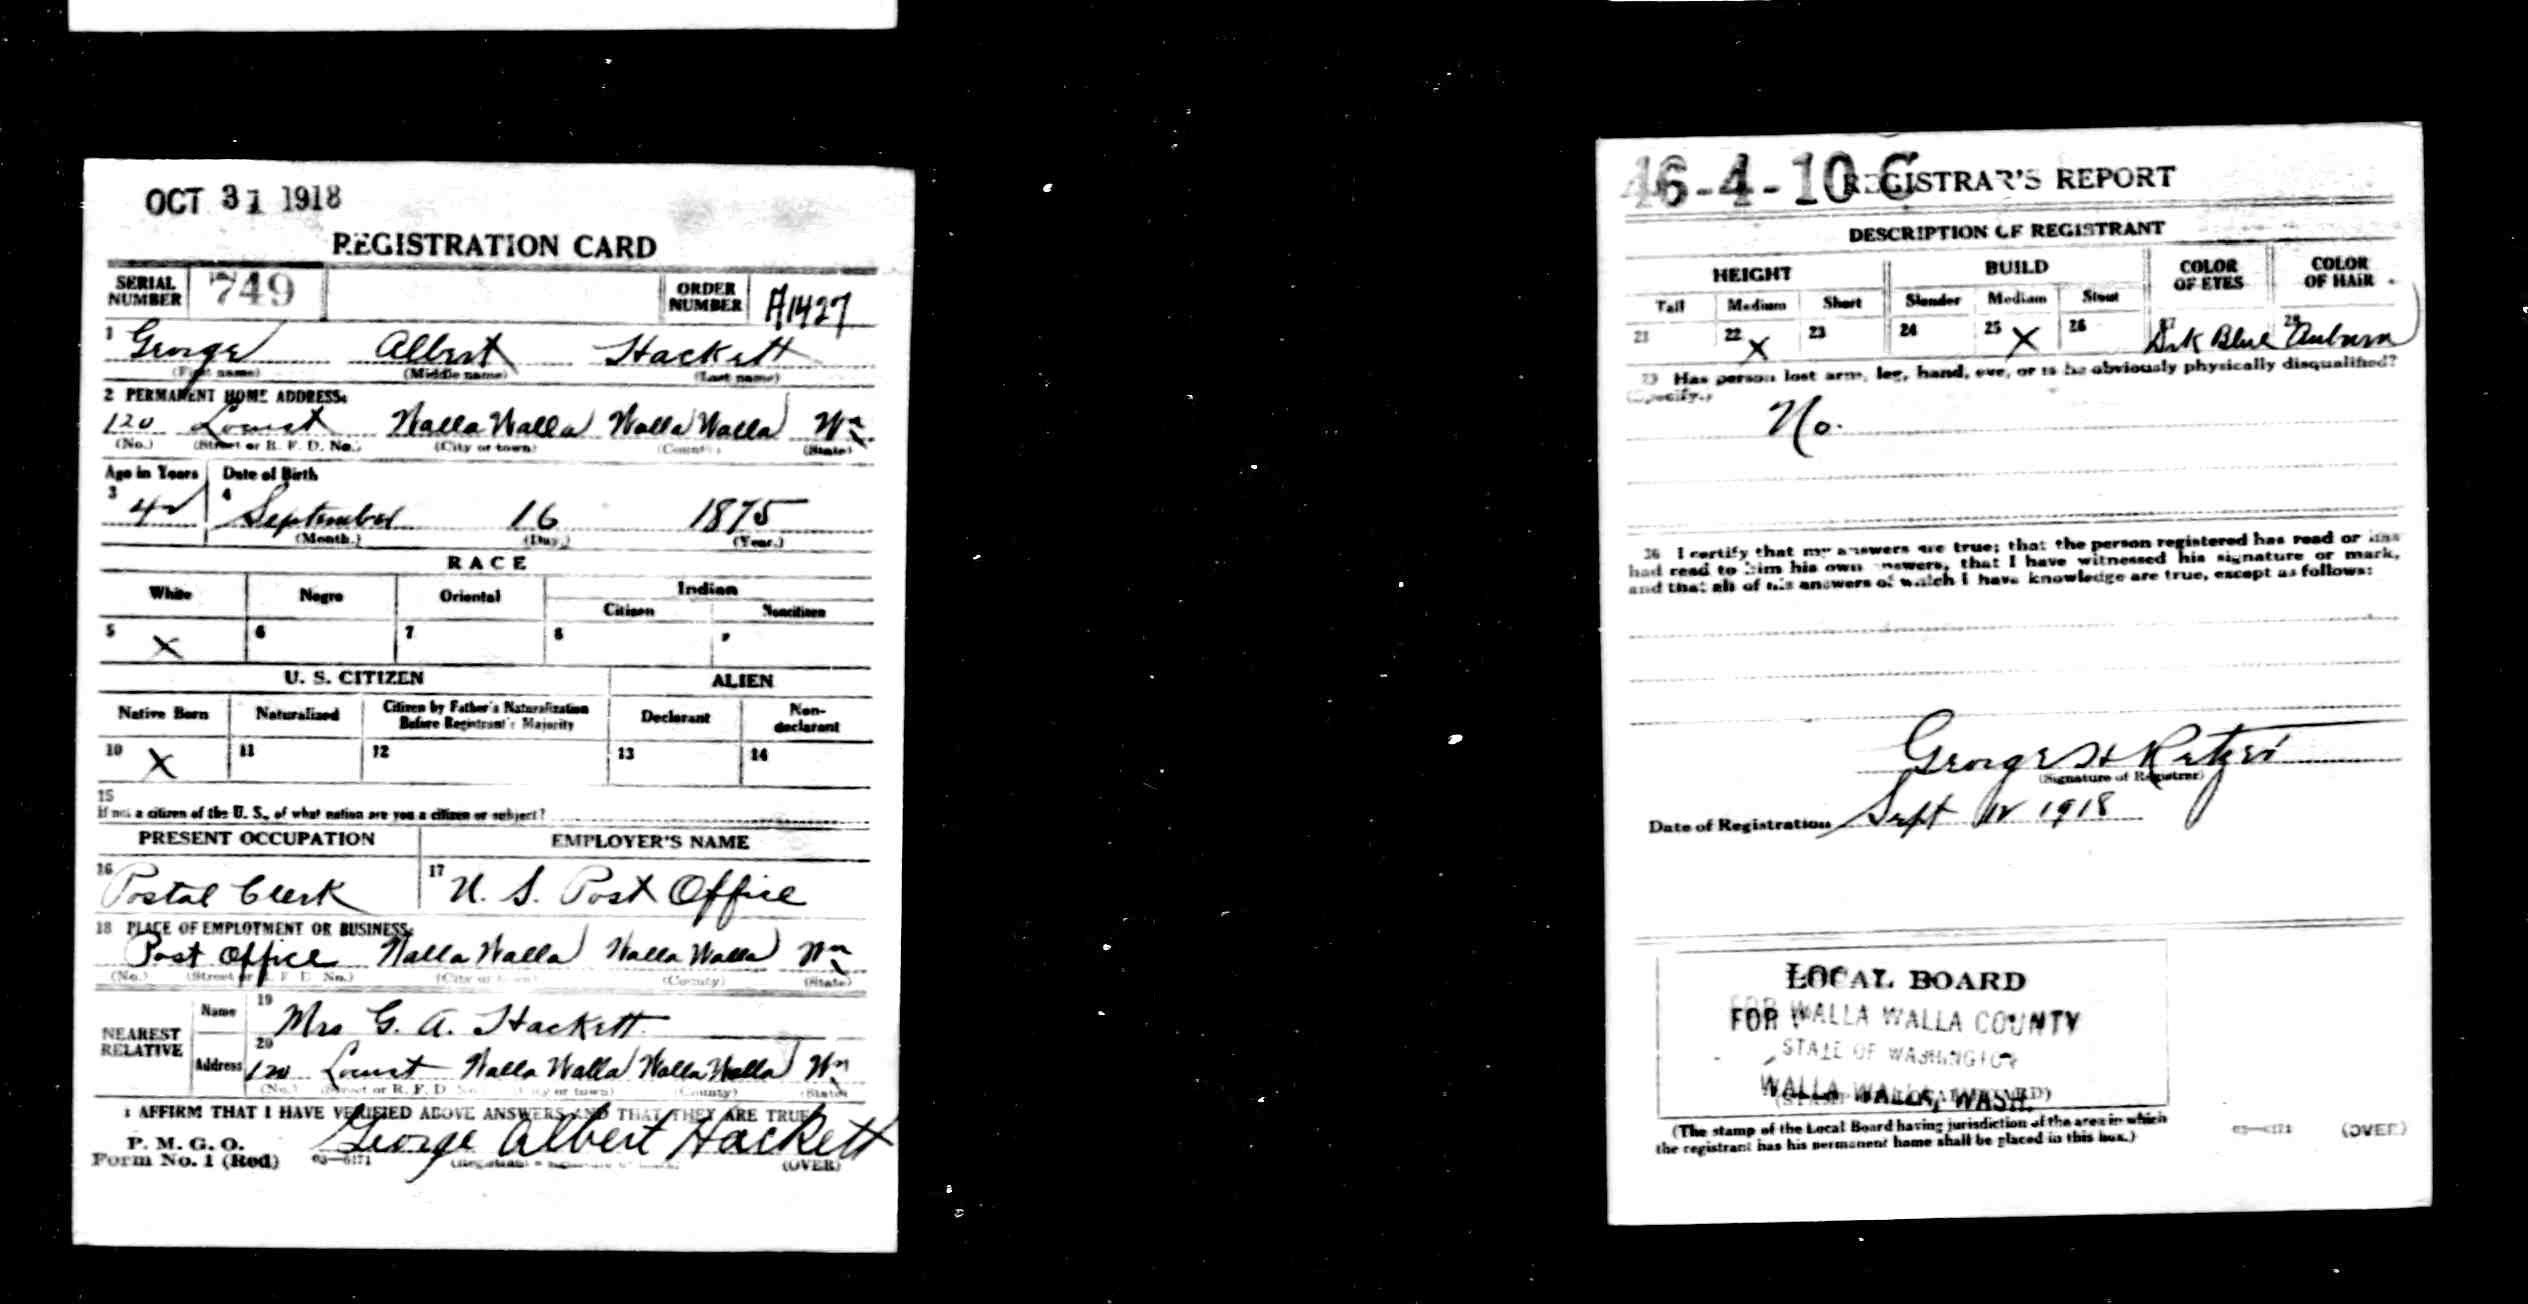 OCT 31 1918
REGISTRATION CARD
SERIAL NUMBER 749 ORDER NUMBER A1427
1 George Albert Hackett
(First name) (Middle name) (Last name)
2 PERMANENT HOME ADDRESS:
120 Locust Walla Walla Walla Walla Wn
(No.) (Street or R. F. D. No.) (City or town) (County) (State)
Age in Years Date of Birth
3 42 4 September 16 1875
(Month.) (Day.) (Year.)
RACE
White Negro Oriental Indian
Citizen Noncitizen
5 X 6 7 8 9
U. S. CITIZEN ALIEN
Native Born Naturalized Citizen by Father's Naturalization Before Registrant's Majority Declarant Non-declarant
10 X 11 12 13 14
15
If not a citizen of the U. S., of what nation are you a citizen or subject?
PRESENT OCCUPATION EMPLOYER'S NAME
16 Postal Clerk 17 U. S. Post Office
18 PLACE OF EMPLOYMENT OR BUSINESS:
Post Office Walla Walla Walla Walla Wn
(No.) (Street or R. F. D. No.) (City or town) (County) (State)
NEAREST RELATIVE
Name 19 Mrs G. A. Hackett
Address 20 120 Locust Walla Walla Walla Walla Wn
(No.) (Street or R. F. D. No.) (City or town) (County) (State)
I AFFIRM THAT I HAVE VERIFIED ABOVE ANSWERS AND THAT THEY ARE TRUE
P. M. G. O.
Form No. 1 (Red) 03—6171 George Albert Hackett
(OVER)
46-4-10 C
REGISTRAR'S REPORT
DESCRIPTION OF REGISTRANT
HEIGHT BUILD COLOR OF EYES COLOR OF HAIR
Tall Medium Short Slender Medium Stout
21 22 X 23 24 25 X 26 27 Drk Blue 28 Auburn
29 Has person lost arm, leg, hand, eye, or is he obviously physically disqualified?
(Specify.)
No.
30 I certify that my answers are true; that the person registered has read or has
had read to him his own answers, that I have witnessed his signature or mark,
and that all of his answers of which I have knowledge are true, except as follows:
George H
(Signature of Registrar)
Date of Registration Sept 12 1918
LOCAL BOARD
FOR WALLA WALLA COUNTY
STATE OF WASHINGTON
WALLA WALLA, WASH.
(The stamp of the Local Board having jurisdiction of the area in which
the registrant has his permanent home shall be placed in this box.)
03—6171 (OVER)